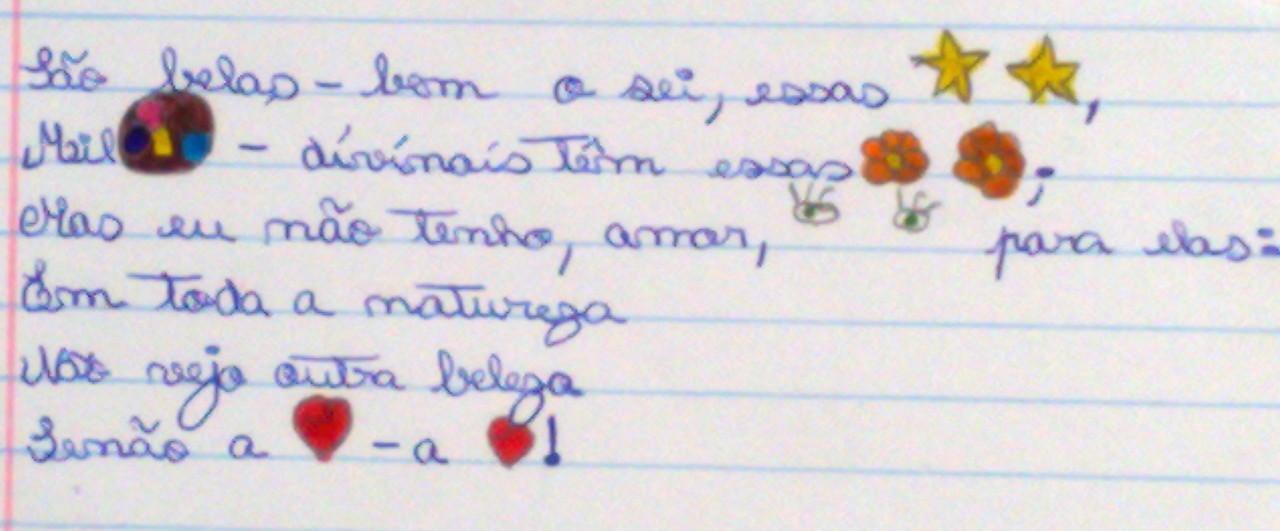 São belas - bem o sei, essas ,
Mil - divinais têm essas ;
Mas eu não tenho, amor, para elas:
Em toda a natureza
Não vejo outra beleza
Senão a - a !